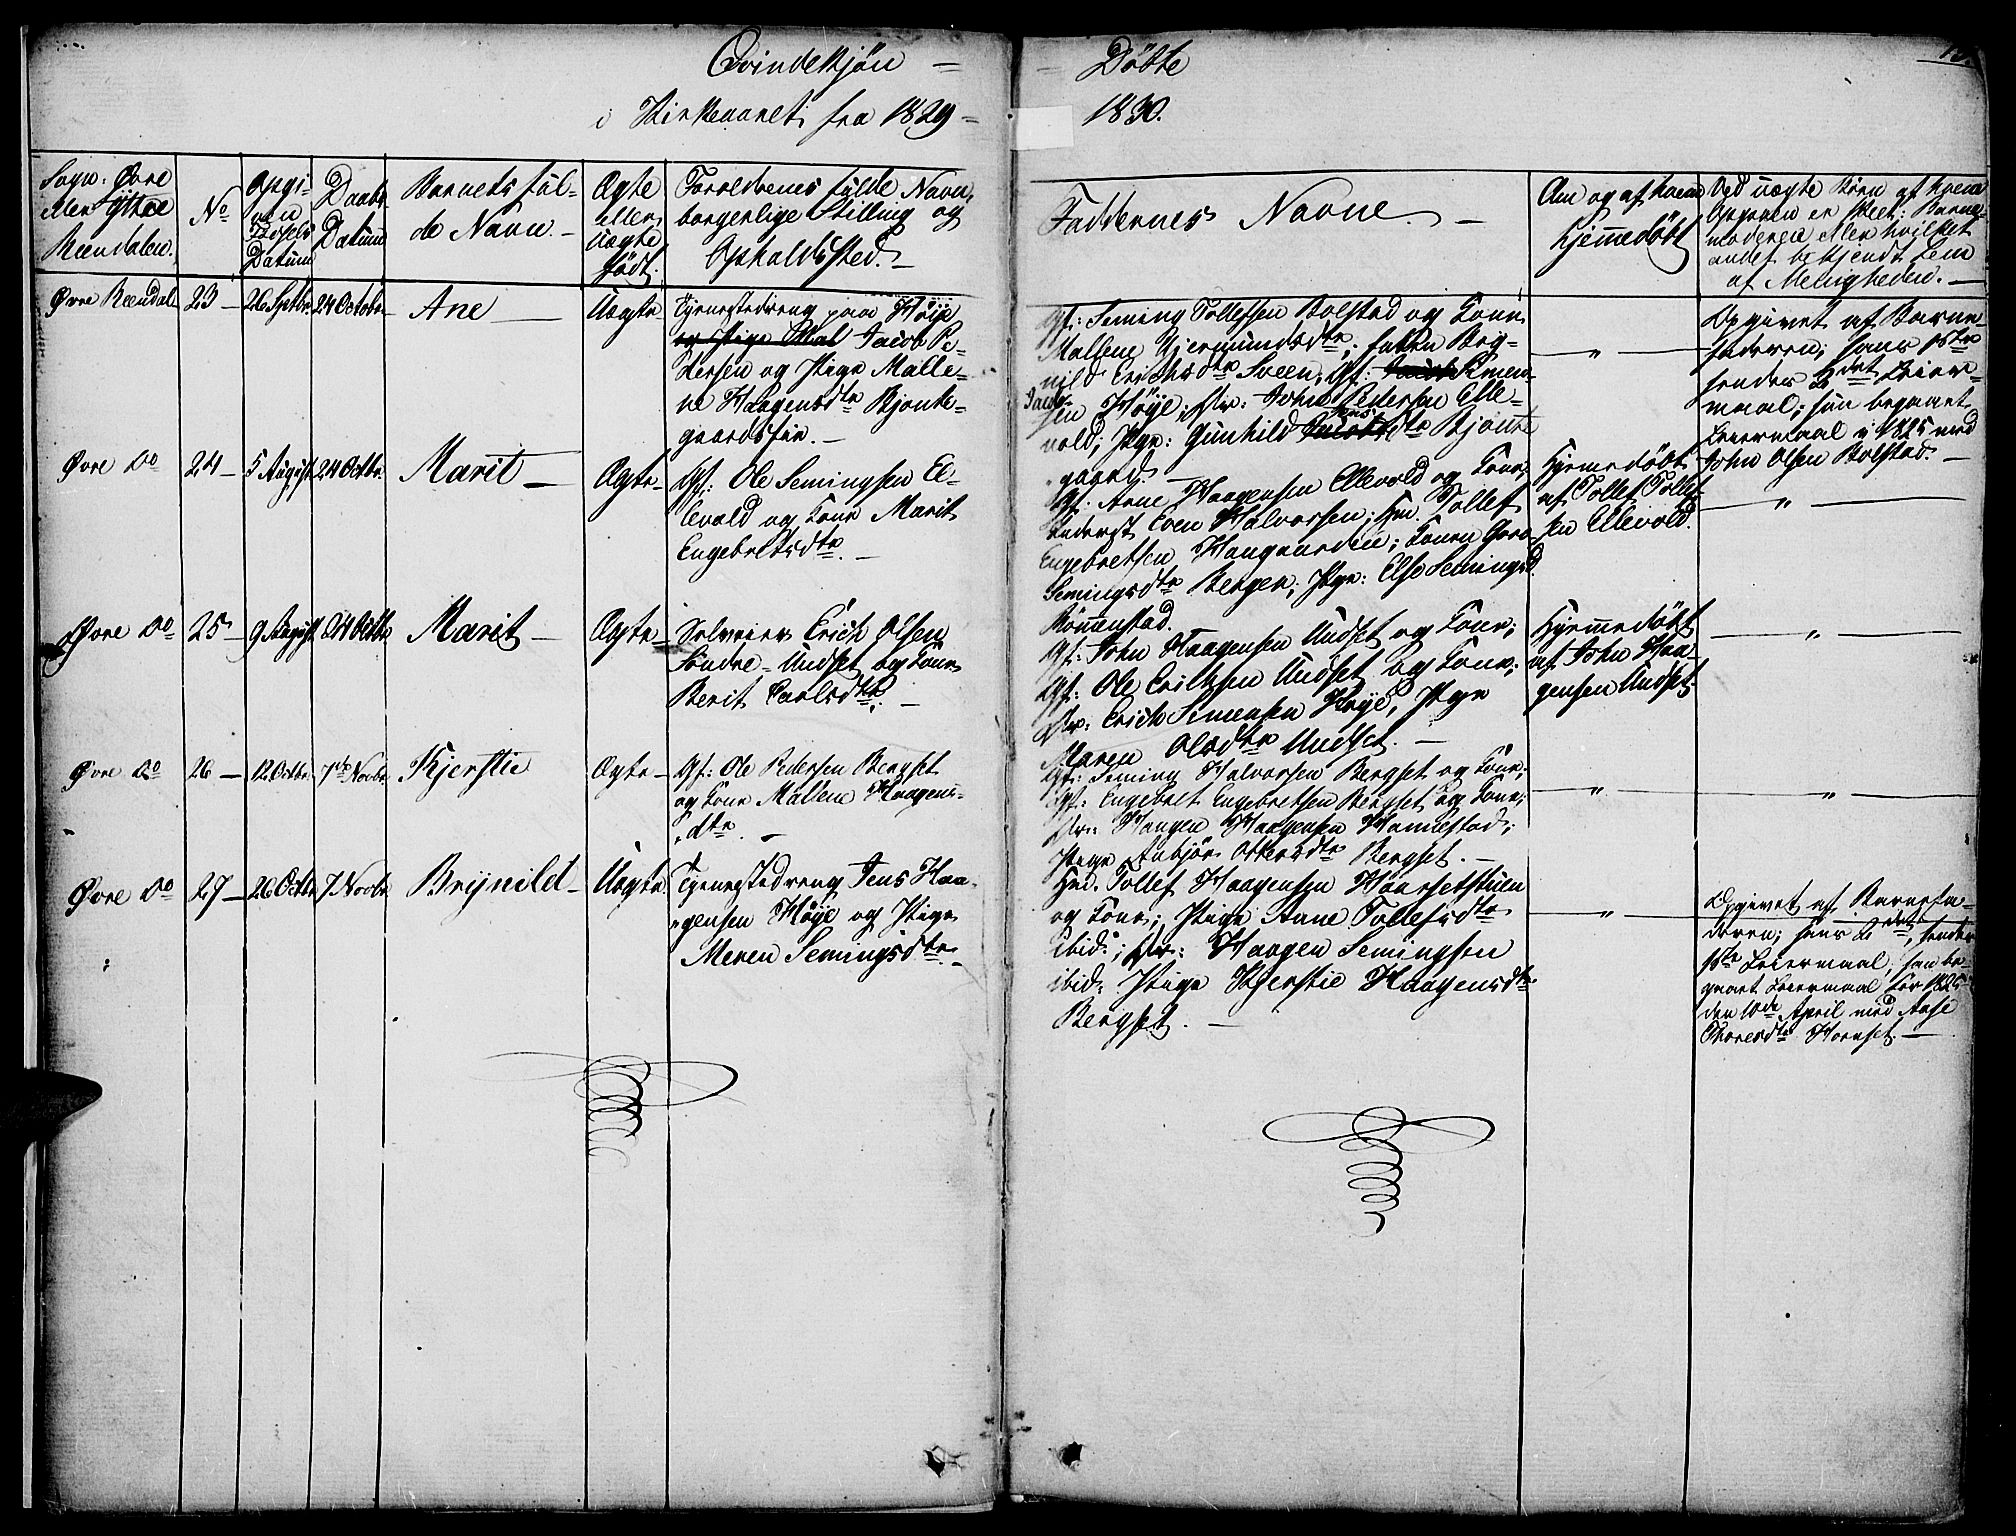 Qvindekjön = = Döbte
i Kirkeaaret fra 1829 = 1830.
Sogn: Øvre
eller Ÿttre
Reendalen.
No
Opgi-
ven
Födsels
Datum
Daabs
Datum
Barnets ful-
de Navn. -
Ægte
eller
uægte
födt.
Foreldrenes fulde Navn,
borgerlige Stilling og
Opholdsted. -
Faddernes Navne. -
Om og af hvem
hjemmedöbt
Ved uægte Börn af hvem
Opgaven er skeet: Barne-
moderen eller hvilket
andet bekjendt Lem
af Menigheden. -
Øvre Reendal 23 - 26 Septbr 24 October Ane - Uægte
Tjenestedreng paa Höÿe
Jacob Pe-
dersen og Pige Malle-
ne Haagensdtr Bjonte-
gaardseie. -
Gf: Seming Tollefsen Bolstad og Kone
Mallene Gjermundsdtr; Enken Brÿ-
nild Erichsdtr Sveen; Gf: Simen
Jacob-
sen Höÿe; Dr: John Pedersen Elle-
vold; Pige: Gunhild Jensdtr Bjonte
gaard. -
"
Opgivet af Barne-
faderen; hans 1ste
hendes 2det Leier-
maal; hun begaaet
Leiermaal i 1825 med
John Olsen Bolstad. -
Øvre do 24 - 5 August 24 Octbr. Marit - Ægte -
Gf: Ole Semingsen El-
levold og Kone Marit
Engebretsdtr. -
Gf: Arne Haagensen Ellevold og Kone;
Inderst Even Halvorsen; Hmd. Tollef
Engebretsen Haugaarden; Konen Goro
Semingsdtr Bergen; Pige: Else Semingsd.
Römenstad.
Hjemmedöbt
af Tollef Tollef-
sen Ellevold.
"
Øvre do 25 - 9 August 24 Octbr Marit - Ægte -
Selveier Erich Olsen
Söndre-Undset og Kone
Berit Carlsdtr. -
Gf: John Haagensen Undset og Kone;
Gf: Ole Eriksen Undset og Kone;
Dr: Erich Simensen Höÿe, Pige
Maren Olsdtr Undset. -
Hjemmedöbt
af John Haa-
gensen Undset.
"
Øvre do 26 - 12 Octbr 7de Novbr. Kjerstie Ægte -
Gf: Ole Pedersen Bergset
og Kone Malene Haagens-
dtr. -
Gf: Seming Halvorsen Bergset og Kone;
Gf: Engebret Engebretsen Bergset og Kone;
Dr: Haagen Haagensen Hanestad;
Pige Anbjör Ottersdtr Bergset. -
"
"
Øvre do 27 - 26 Octbr 7 Novbr Brÿnild - Uægte
Tjenestedreng Jens Haa-
gensen Höÿe og Pige
Meren Semingsdtr. -
Hmd. Tollef Haagensen Haarsetstuen
og Kone; Pige Anne Tollefsdtr
ibid:; Dr: Haagen Semingsen
ibid: Pige Kjerstie Haagensdtr
Bergset. -
"
Opgivet af Barnefa-
deren; hans 2det, hendes
1ste Leiermaal; han be-
gaaet Leiermaal för 1825
den 10de April med Aase
Thoresdtr Hornset. -